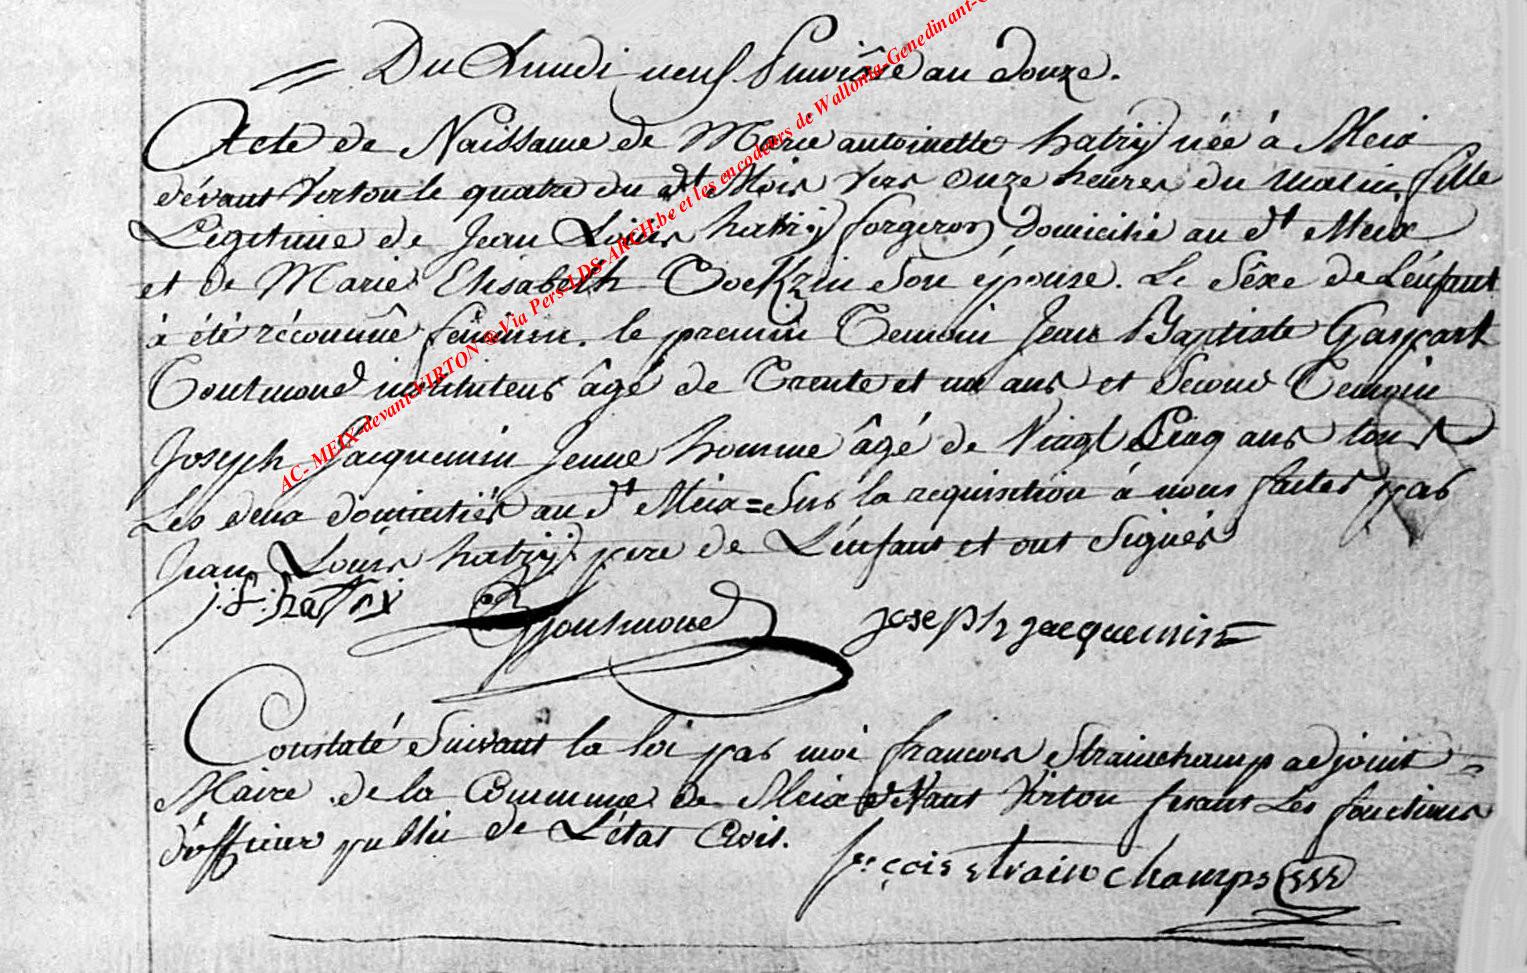 Du Lundi neuf Pluviôse an douze.
Acte de Naissance de Marie antoinette hatrij née à Meix
dévant Virton le quatre du dt Mois vers onze heures du matin fille
Légitime de Jean Louis hatrij forgeron Domicilié au dt Meix
et de Marie Elisabeth Son épouse. Le Séxe de L'enfant
à été réconnuê féminin. le premier Temoin Jean Baptiste Gaspart
Goutmond instituteur âgé de Trente et un ans et Second Temoin
Joseph Jacquemin Jeune homme âgé de Vingt Cinq ans tous
Les deux domiciliés au dt Meix = Sur la requisition à nous faites par
Jean Louis hatrij pere de L'enfant et ont Signés
j: l: hattrÿ Goutmond joseph jacquemin
Constaté Suivant la loi par moi françois Strainchamp adjoint =
Maire de la Commune de Meix dévant Virton fesant Les fonctions
d'officier public de L'état Civil.
frçois strainchamps
AC- MEIX-devant-VIRTON ® Via Pers-LDS-ARCH.be et les encodeurs de Wallonia-Genedinant-